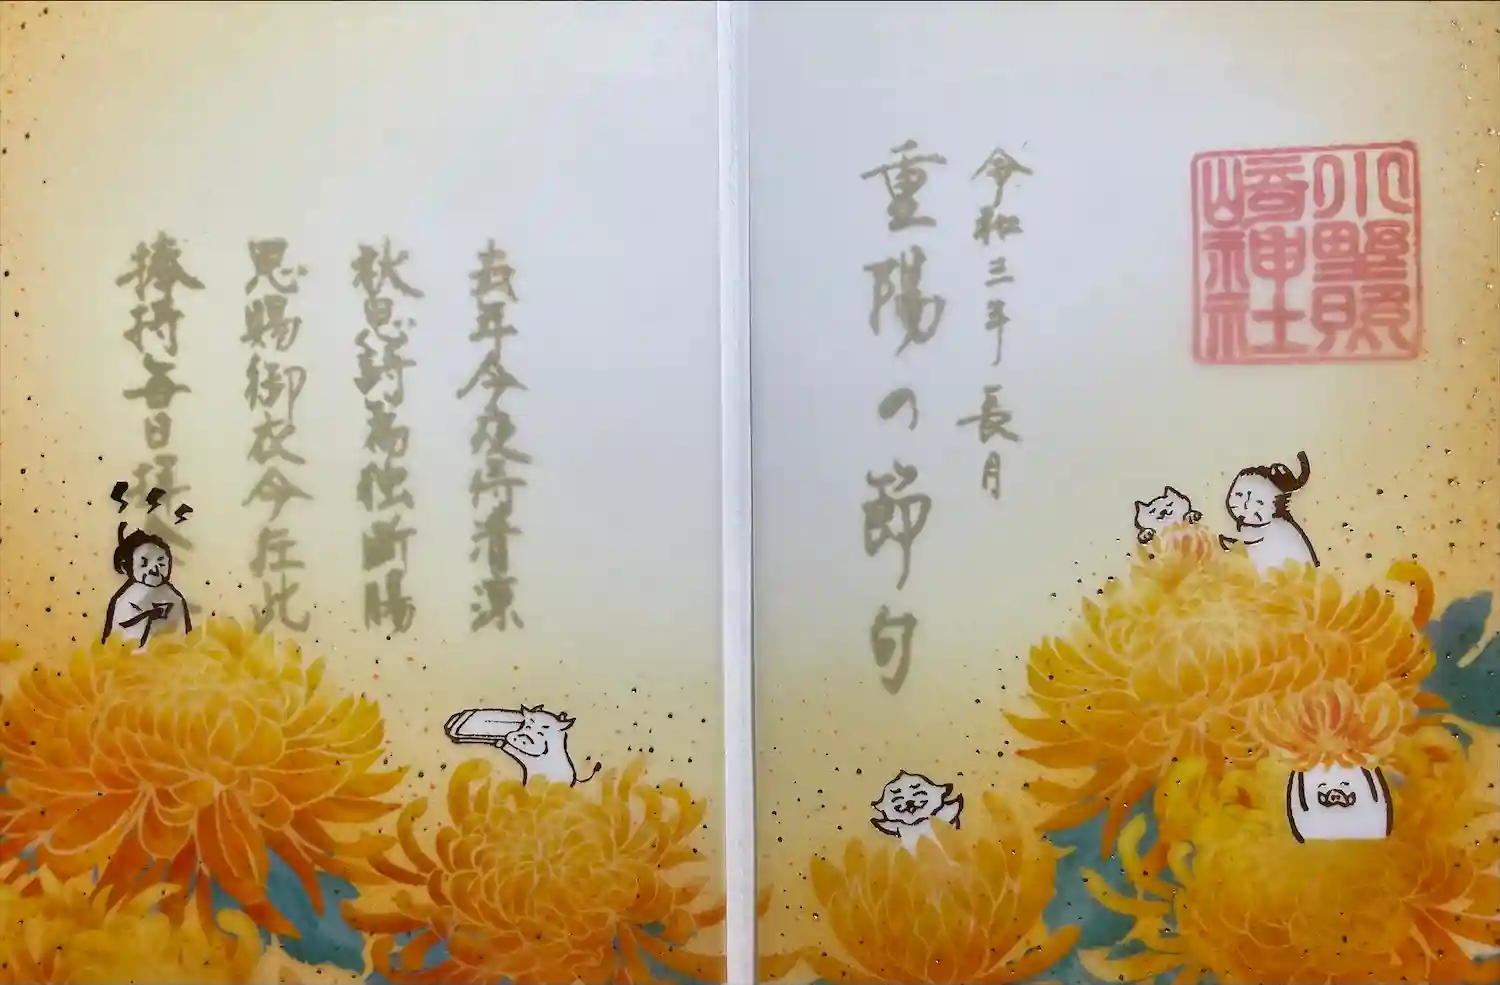 小野照
崎神社
令和三年 長月
重陽の節句
去年今夜侍清涼
秋思詩篇独断腸
恩賜御衣今在此
捧持毎日拝余